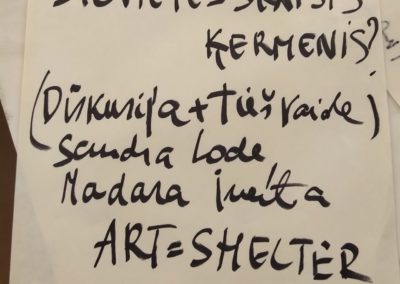 ĶERMENIS?
(Diskusija + Tiešraide)
Sandra Lode
Madara
ART=SHELTER